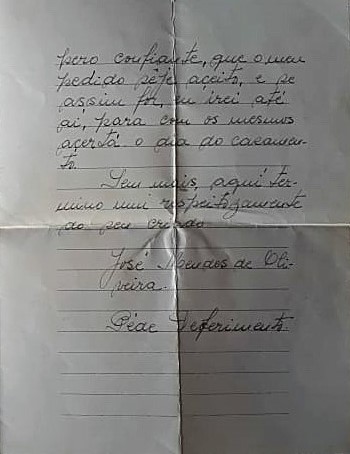 pero confiante, que o meu
pedido sêje aceito, e se
assim for, eu irei até
ai, para com os mesmos
acertá o dia do casamen-
to.
Sem mais, aqui ter-
mino mui respeitozamente
do seu criado
José Mendes de Oli-
veira.
Péde Deferimento.